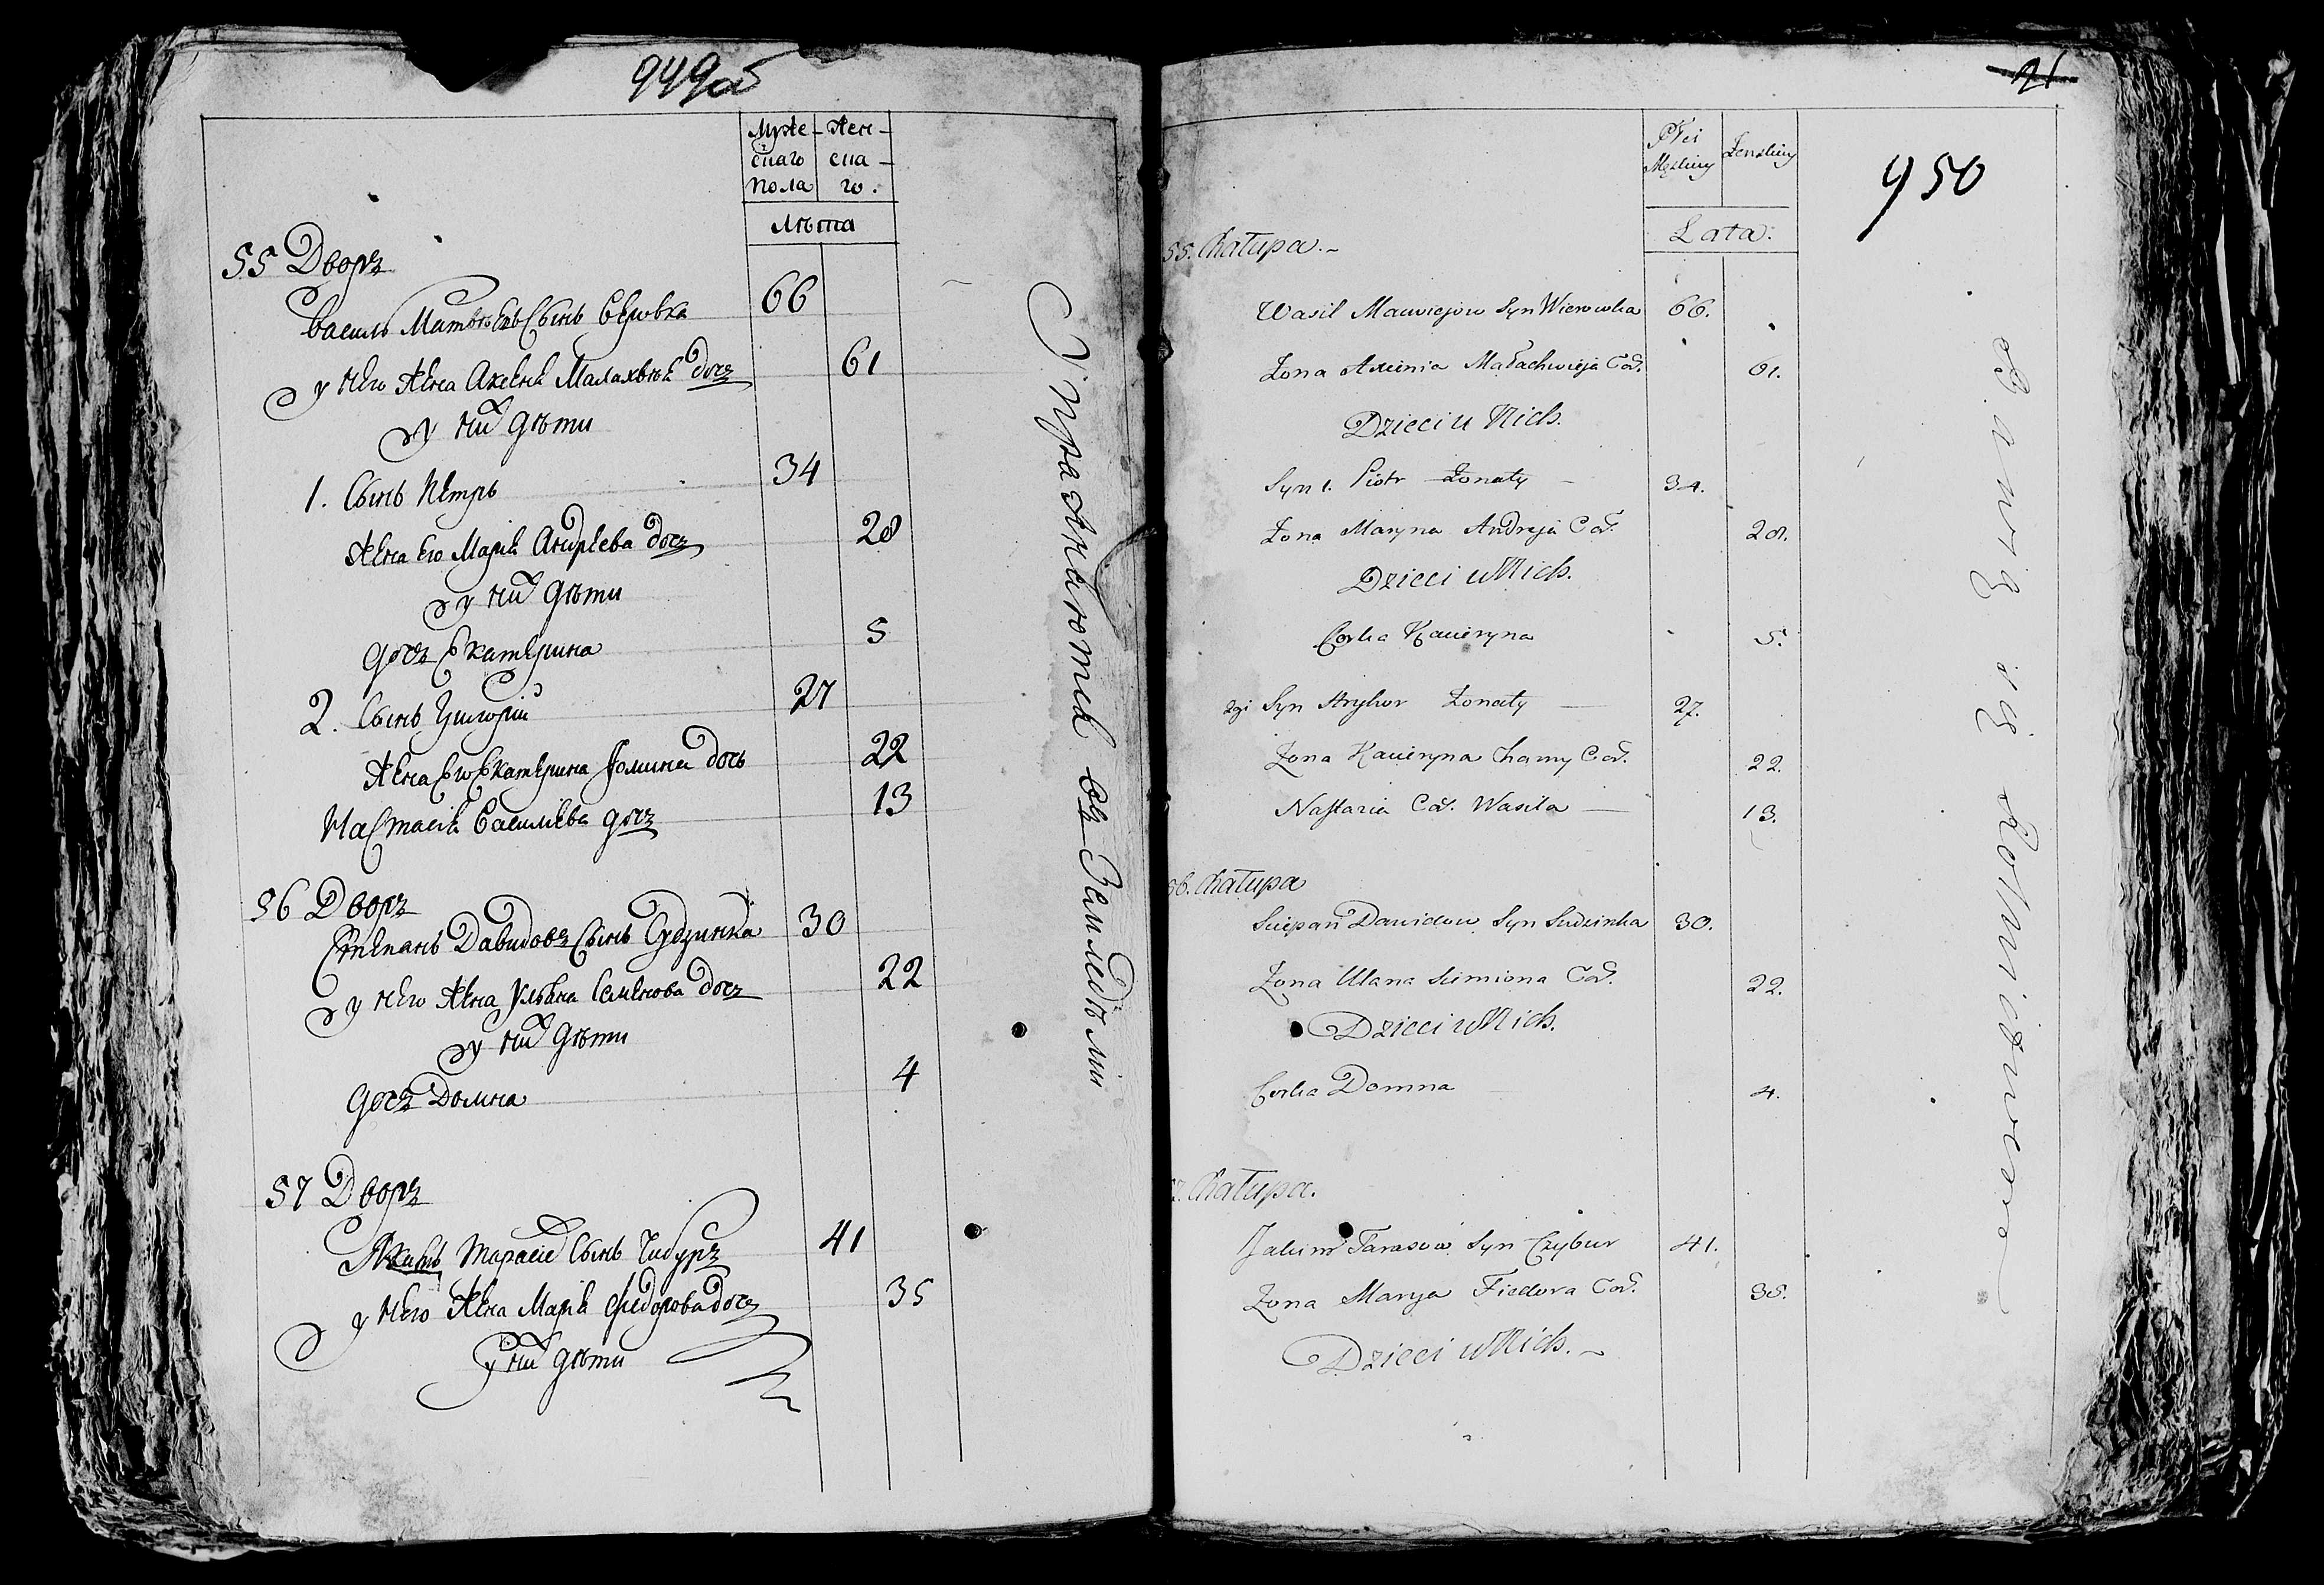 949об
Муже- Жен-
скаго ска-
пола го.
Лѣта
55 Дворъ
Василь Матвѣевъ Сынъ Веровка 66
у него Жена Аксенiя Малахвѣя дочъ 61
у них дѣти
1. Сынъ Петръ 34
Жена Его Марiя Андреева дочъ 28
у них дѣти
дочъ Екатерина 5
2. Сынъ Григорiй 27
Жена Ево Екатерина Фомина дочь 22
Настасiя Васильева дочъ 13
56 Дворъ
Степанъ Давидовъ Сынъ Судзинка 30
у него Жена Ульяна Семенова дочъ 22
у них дѣти
дочъ Домна 4
57 Дворъ
Якимъ Тарасiе Сынъ Чибуръ 41
у него Жена Марiя Федорова дочъ 35
у них дѣти
Упражняются въ Земледѣлiи
21
950
Płci
Męskiey Zenskiey
Lata:
55. Chałupa.-
Wasil Macwiejow Syn Wierowka 66.
Zona Axinia Małachwieja Cor. 61.
Dzieci u Nich.
Syn 1. Piotr Zonaty - 34.
Zona Maryna Andreja Cor. 28.
Dzieci u Nich.
Corka Kacieryna 5.
2gi Syn Hryhor Zonaty — 27.
Zona Kacieryna Chomy Cor. 22.
Nastazia Cor. Wasila — 13.
56. Chałupa
Sciepan Dawidow Syn Sudzinka 30.
Zona Ulana Siemiona Cor. 22.
Dzieci u Nich.
Corka Domna 4.
57. Chałupa.
Jakim Tarasow Syn Czybur 41.
Zona Marya Fiedora Cor. 35.
Dzieci u Nich.-